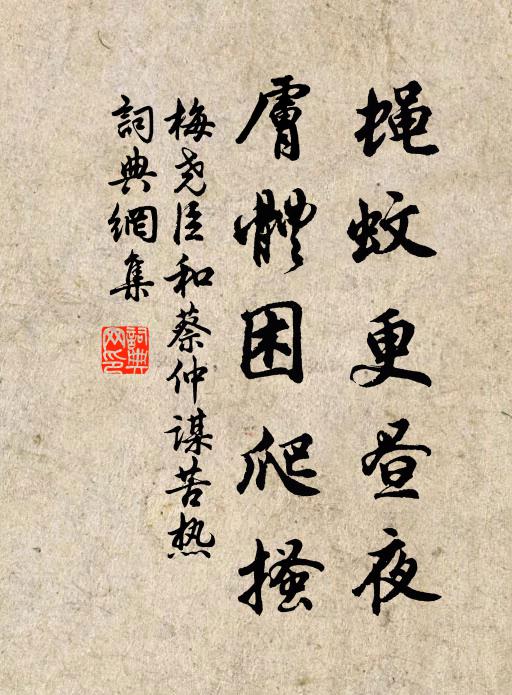 蝇蚊更昼夜
膚體困爬搔
梅尧臣和蔡仲謀苦热
詞典網集
詞典网印